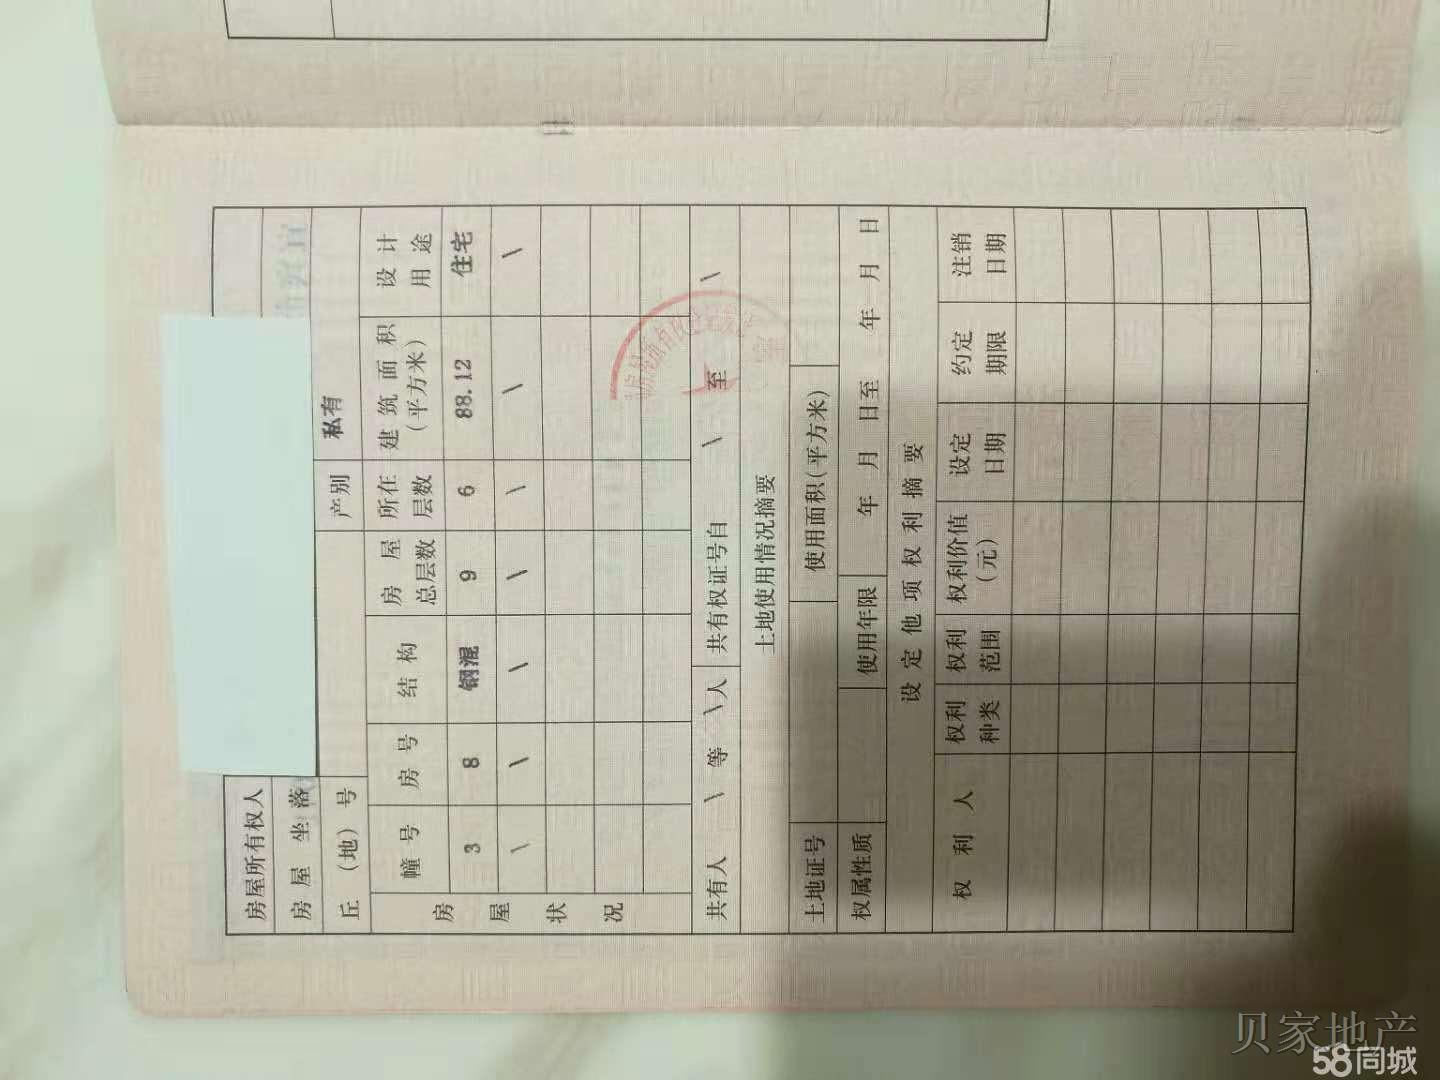 房屋所有权人
房屋坐落
丘（地）号 产别 私有
房屋状况
幢号 房号 结构 房屋总层数 所在层数 建筑面积（平方米） 设计用途
3 8 钢混 9 6 88.12 住宅
\ \ \ \ \ \ \
共有人 \ 等 \ 人 共有权证号自 \ 至 \
土地使用情况摘要
土地证号 使用面积（平方米）
权属性质 使用年限 年 月 日至 年 月 日
设定他项权利摘要
权利人 权利种类 权利范围 权利价值（元） 设定日期 约定期限 注销日期
贝家地产
58同城